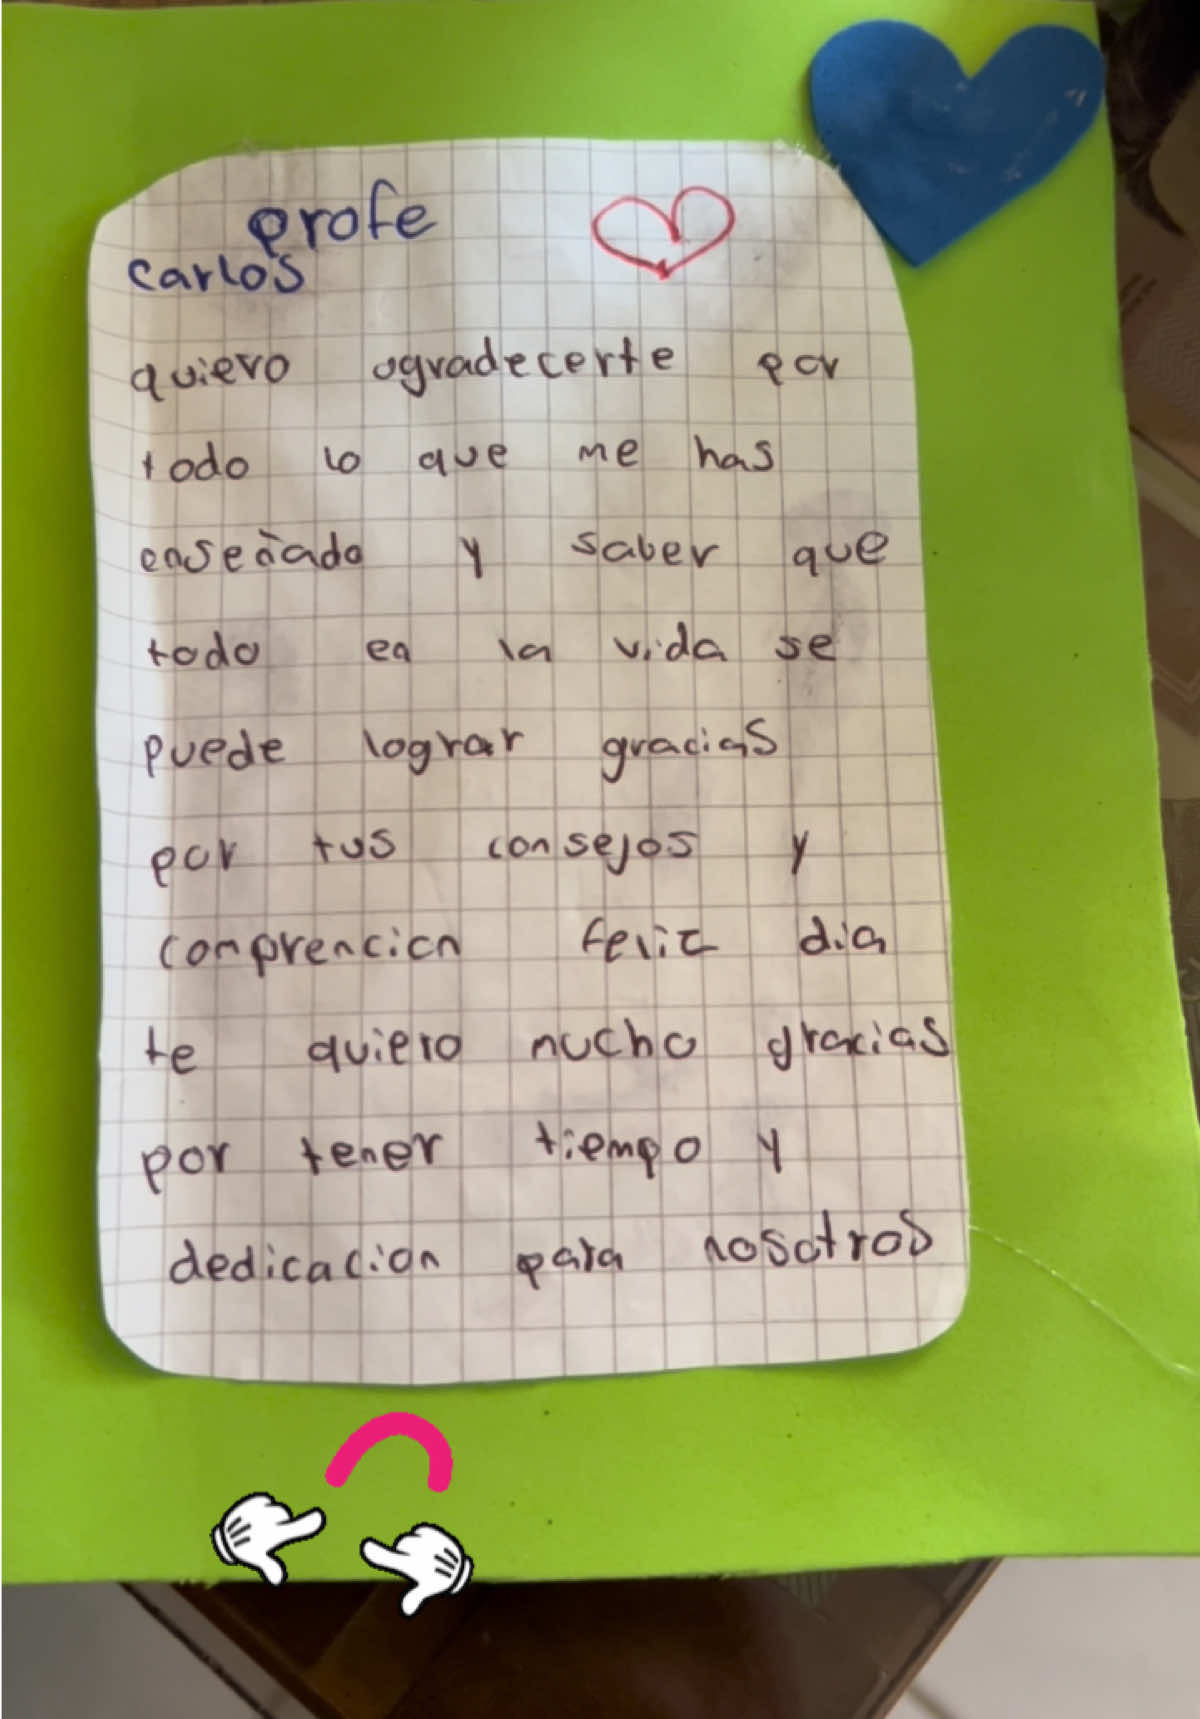 profe
carlos
quiero agradecerte por
todo lo que me has
enseñado y saber que
todo en la vida se
puede lograr gracias
por tus consejos y
comprencion feliz dia
te quiero mucho gracias
por tener tiempo y
dedicacion para nosotros